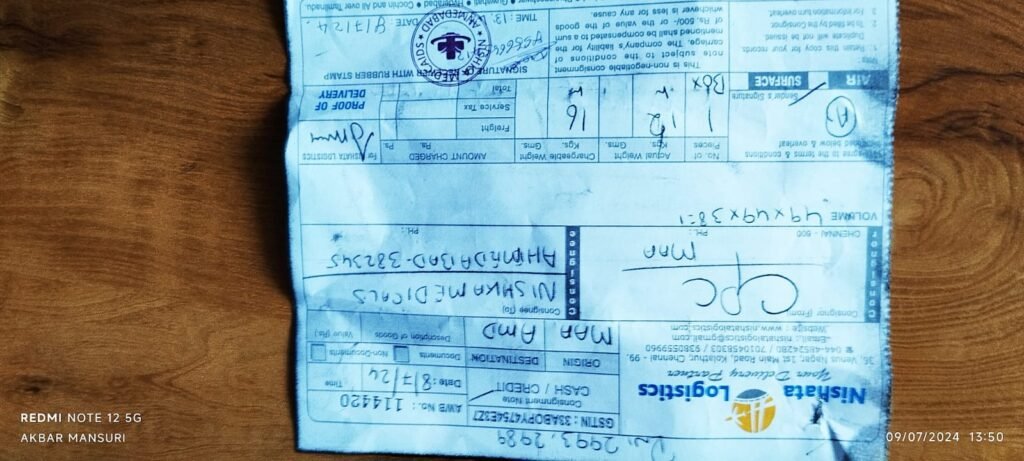 D.N: 2993, 2989
Nishata
Logistics
Your Delivery Partner
36, Venus Nagar, 1st Main Road, Kolathur, Chennai - 99.
☎ 044-48524280 / 7010458303 / 9380559960
Email: nishatalogistics@gmail.com
Website: www.nishatalogistics.com
GSTIN : 33ABOPY4754E3Z7
Consignment Note
CASH / CREDIT
AWB No.: 114420
Date: 8/7/24
Time
ORIGIN
DESTINATION
MAA
AMD
Documents
Non-Documents
Description of Goods
Value (Rs.)
Consignor (From)
CPC
MAA
CHENNAI - 600
PH.:
Consignor
Consignee (To)
NISHKA MEDICALS
AHMEDABAD-382345
PH.:
Consignee
VOLUME 49x49x38=1
I/We agree to the terms & conditions
mentioned below & overleaf
Sender's Signature
AIR
SURFACE
No. of
Pieces
Actual Weight
Kgs. Gms.
Chargeable Weight
Kgs. Gms.
AMOUNT CHARGED
Rs.
Ps.
for NISHATA LOGISTICS
1
Box
12
16
Freight
Service Tax
Total
PROOF OF
DELIVERY
1. Retain this copy for your records
Duplicate will not be issued
2. To be filled by the Consignor.
3. For information turn overleaf.
This is non-negotiable consignment
note subject to the conditions of
carriage. The company's liability for
mentioned shall be compensated to a sum
of Rs. 500/- or the value of the goods
whichever is less for any cause.
SIGNATURE OF RECEIVER WITH RUBBER STAMP
NISHKA MEDICAIDS
AHMEDABAD
TIME: 13.
DATE 8/7/24
Guwahati
Cochin and All over Tamilnadu
REDMI NOTE 12 5G
AKBAR MANSURI
09/07/2024 13:50